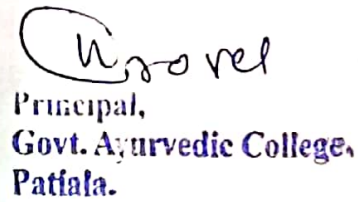 Principal,
Govt. Ayurvedic College,
Patiala.